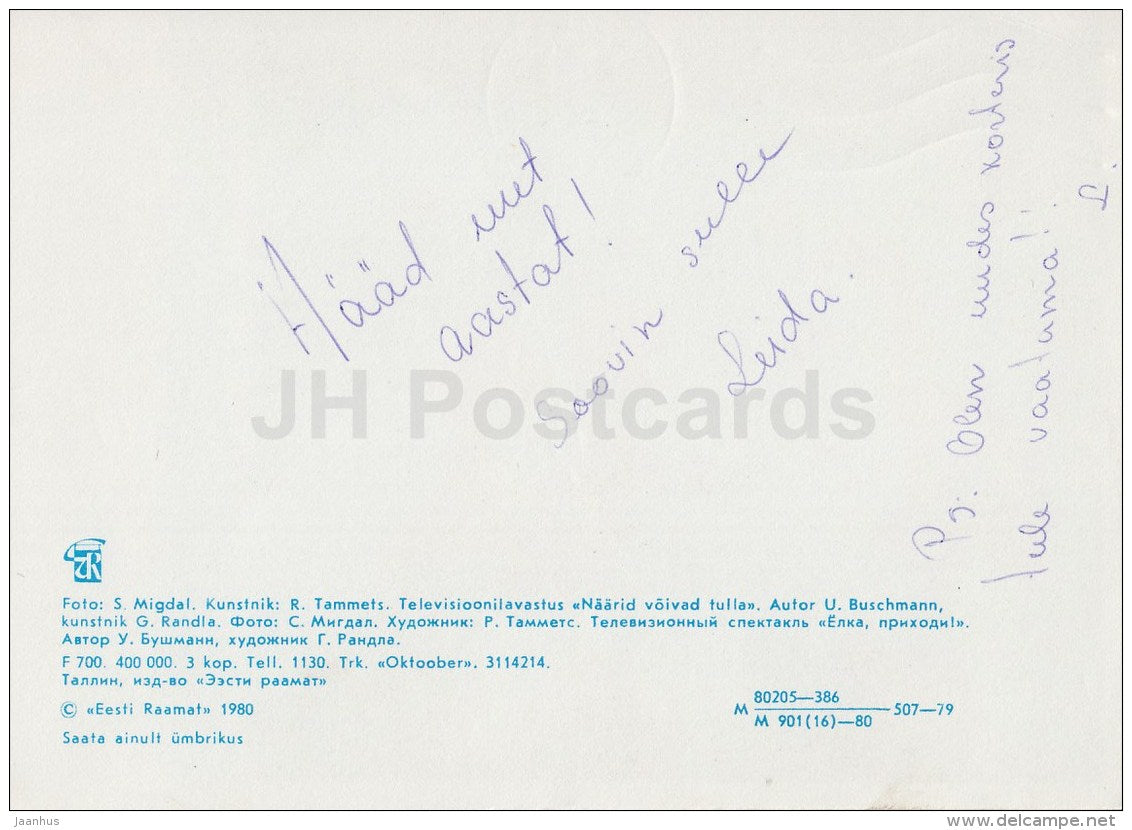 Hääd uut
aastat!
Soovin sulle
Leida.
Ps. Olen uudes korteris
Tule vaatama!!
L.
JH Postcards
ER
Foto: S. Migdal. Kunstnik: R. Tammets. Televisioonilavastus «Näärid võivad tulla». Autor U. Buschmann,
kunstnik G. Randla. Фото: С. Мигдал. Художник: Р. Тамметс. Телевизионный спектакль «Ёлка, приходи!».
Автор У. Бушманн, художник Г. Рандла.
F 700. 400 000. 3 kop. Tell. 1130. Trk. «Oktoober». 3114214.
Таллин, изд-во «Ээсти раамат»
© «Eesti Raamat» 1980
Saata ainult ümbrikus
М 80205—386
М 901(16)—80 507—79
Jaanhus
delcampe.net